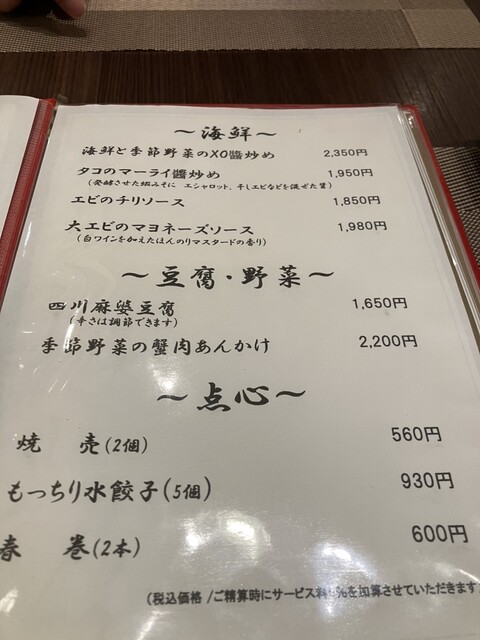 ～海鮮～
海鮮と季節野菜のXO醬炒め 2,350円
タコのマーライ醬炒め 1,950円
(発酵させた蝦みそに エシャロット、干しエビなどを混ぜた醤)
エビのチリソース 1,850円
大エビのマヨネーズソース 1,980円
(白ワインを加えたほんのりマスタードの香り)
～豆腐・野菜～
四川麻婆豆腐 1,650円
(辛さは調節できます)
季節野菜の蟹肉あんかけ 2,200円
～点心～
焼 売(2個) 560円
もっちり水餃子(5個) 930円
春 巻(2本) 600円
(税込価格 /ご精算時にサービス料 %を加算させていただきます